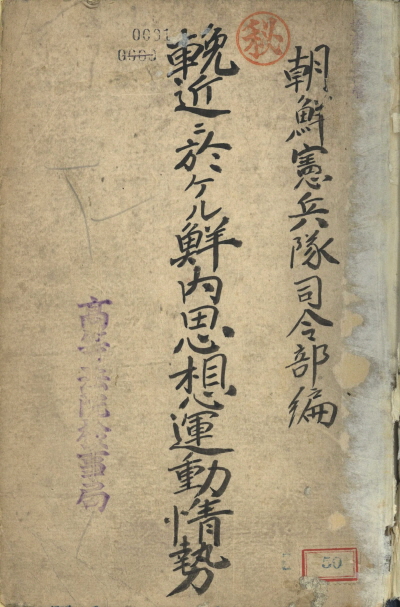 朝鮮憲兵隊司令部編
秘
輓近ニ於ケル鮮内思想運動情勢
0031
高等法院検事局
50